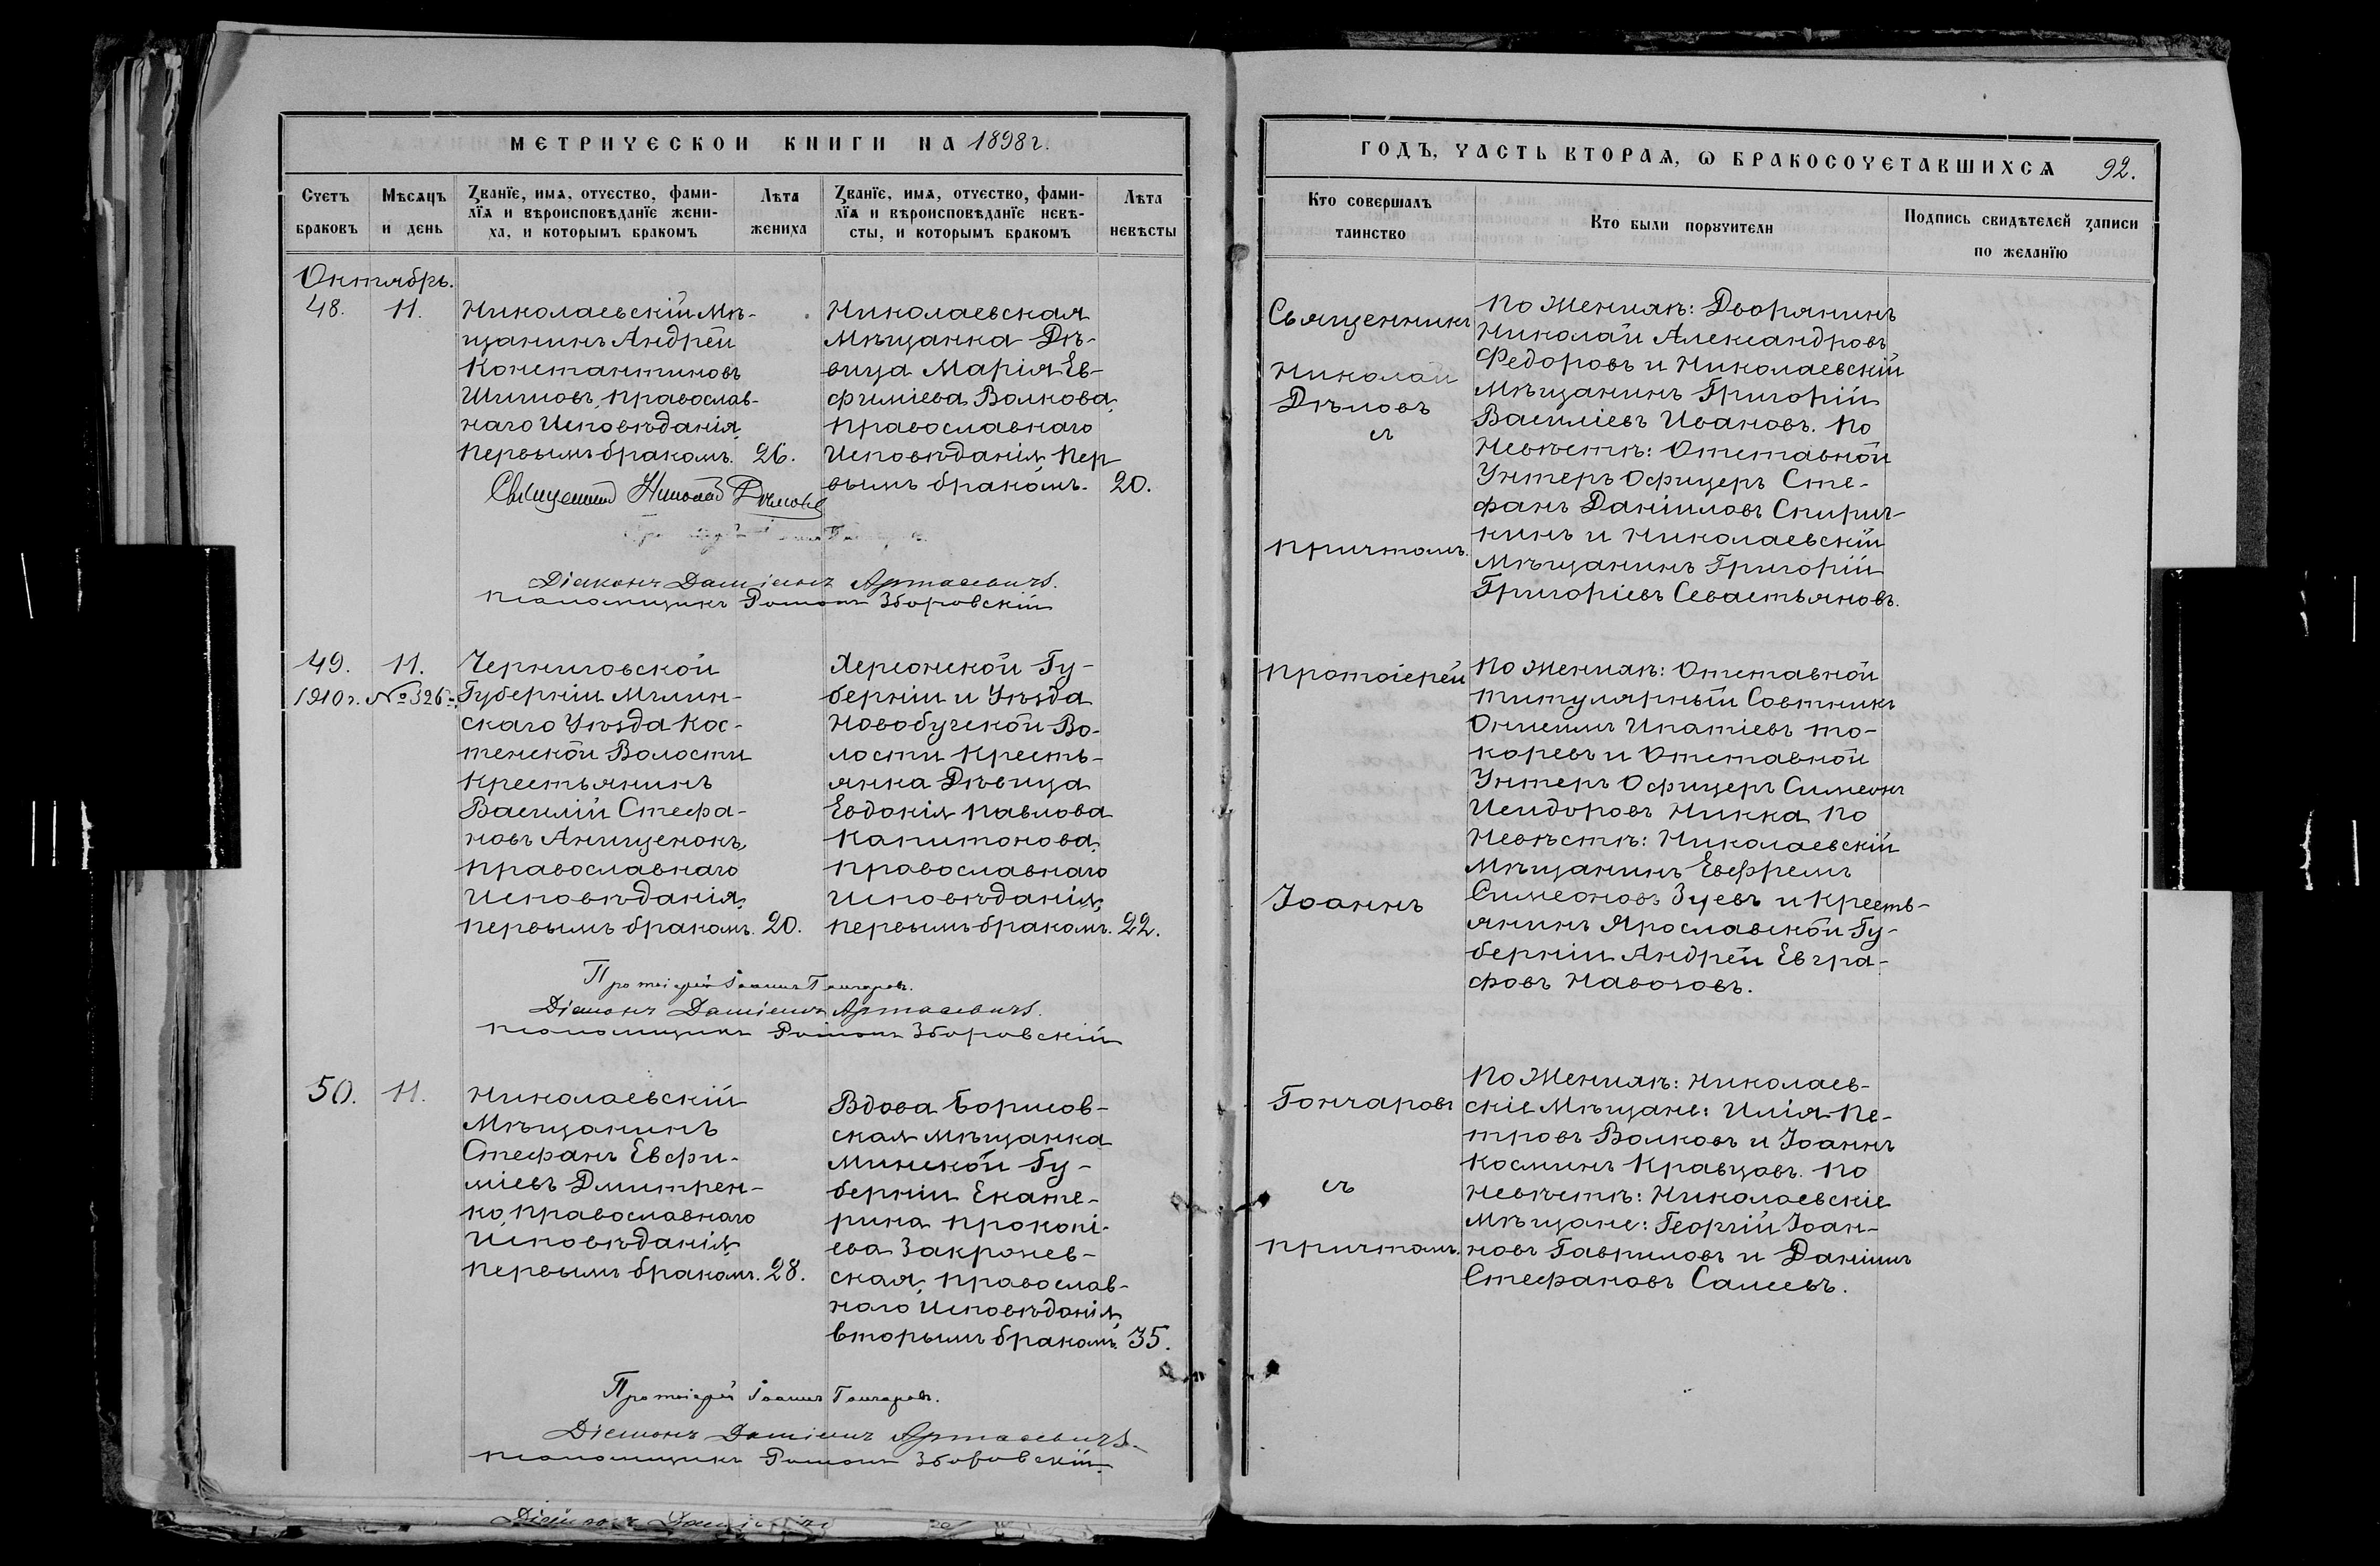 МЕТРИЧЕСКОЙ КНИГИ НА 1898 г.
Счетъ браковъ
Мѣсяцъ и день
Званїе, имя, отчество, фами-
лїя и вѣроисповѣданїе жени-
ха, и которымъ бракомъ
Лѣта жениха
Званїе, имя, отчество, фами-
лїя и вѣроисповѣданїе невѣ-
сты, и которымъ бракомъ
Лѣта невѣсты
Октябрь.
48. 11.
Николаевскій Мѣ-
щанинъ Андрей
Константиновъ
Шиловъ, православ-
наго Исповѣданія,
первымъ бракомъ. 26.
Николаевская
Мѣщанка Дѣ-
вица Марія Ев-
фиміева Волкова,
православнаго
Исповѣданія, пер
вымъ бракомъ. 20.
Священникъ Николай Дѣловъ
Діаконъ Даміанъ Артасевичъ.
псаломщикъ Романъ Зборовскій
49. 11.
1910 г. № 326
Черниговской
Губерніи Мглин-
скаго Уѣзда Кос-
тенской Волости
Крестьянинъ
Василій Стефа-
новъ Анищенокъ,
православнаго
Исповѣданія,
первымъ бракомъ. 20.
Херсонской Гу-
берніи и Уѣзда
Новобугской Во-
лости Кресть-
янка Дѣвица
Евдокія Павлова
Капитонова,
православнаго
Исповѣданія,
первымъ бракомъ. 22.
Протоіерей Іоаннъ Гончаровъ.
Діаконъ Даміанъ Артасевичъ.
псаломщикъ Романъ Зборовскій
50. 11.
Николаевскій
Мѣщанинъ
Стефанъ Евфи-
міевъ Дмитрен-
ко, православнаго
Исповѣданія,
первымъ бракомъ. 28.
Вдова Борисов-
ская мѣщанка
Минской Гу-
берніи Екате-
рина Прокопі-
ева Закроnев-
ская, православ-
наго Исповѣданія,
вторымъ бракомъ. 35.
Протоіерей Іоаннъ Гончаровъ.
Діаконъ Даміанъ Артасевичъ.
псаломщикъ Романъ Зборовскій
Діаконъ Даміанъ
ГОДЪ, ЧАСТЬ ВТОРАЯ, Ѡ БРАКОСОЧЕТАВШИХСЯ 92.
Кто совершалъ таинство
Кто были поручители
Подпись свидѣтелей записи по желанїю
Священникъ
Николай
Дѣловъ
съ
причтомъ.
По Женихѣ: Дворянинъ
Николай Александровъ
Федоровъ и Николаевскій
Мѣщанинъ Григорій
Василіевъ Ивановъ. По
Невѣстѣ: Отставной
Унтеръ Офицеръ Сте-
фанъ Даніиловъ Спирич-
кинъ и Николаевскій
Мѣщанинъ Григорій
Григоріевъ Севастьяновъ.
Протоіерей
Іоаннъ
По Женихѣ: Отставной
Титулярный Совтникъ
Онисимъ Ипатіевъ То-
каревъ и Отставной
Унтеръ Офицеръ Симеонъ
Исидоровъ Никка По
Невѣстѣ: Николаевскій
Мѣщанинъ Евфремъ
Симеоновъ Зуевъ и Кресть-
янинъ Ярославской Гу-
берніи Андрей Евгра-
фовъ Навозовъ.
Гончаровъ
съ
причтомъ.
По Женихѣ: Николаев-
скіе Мѣщане: Илія Пе-
тровъ Волковъ и Іоаннъ
Косминъ Кравцовъ. По
Невѣстѣ: Николаевскіе
Мѣщане: Георгій Іоан-
новъ Гавриловъ и Даніилъ
Стефановъ Салеевъ.